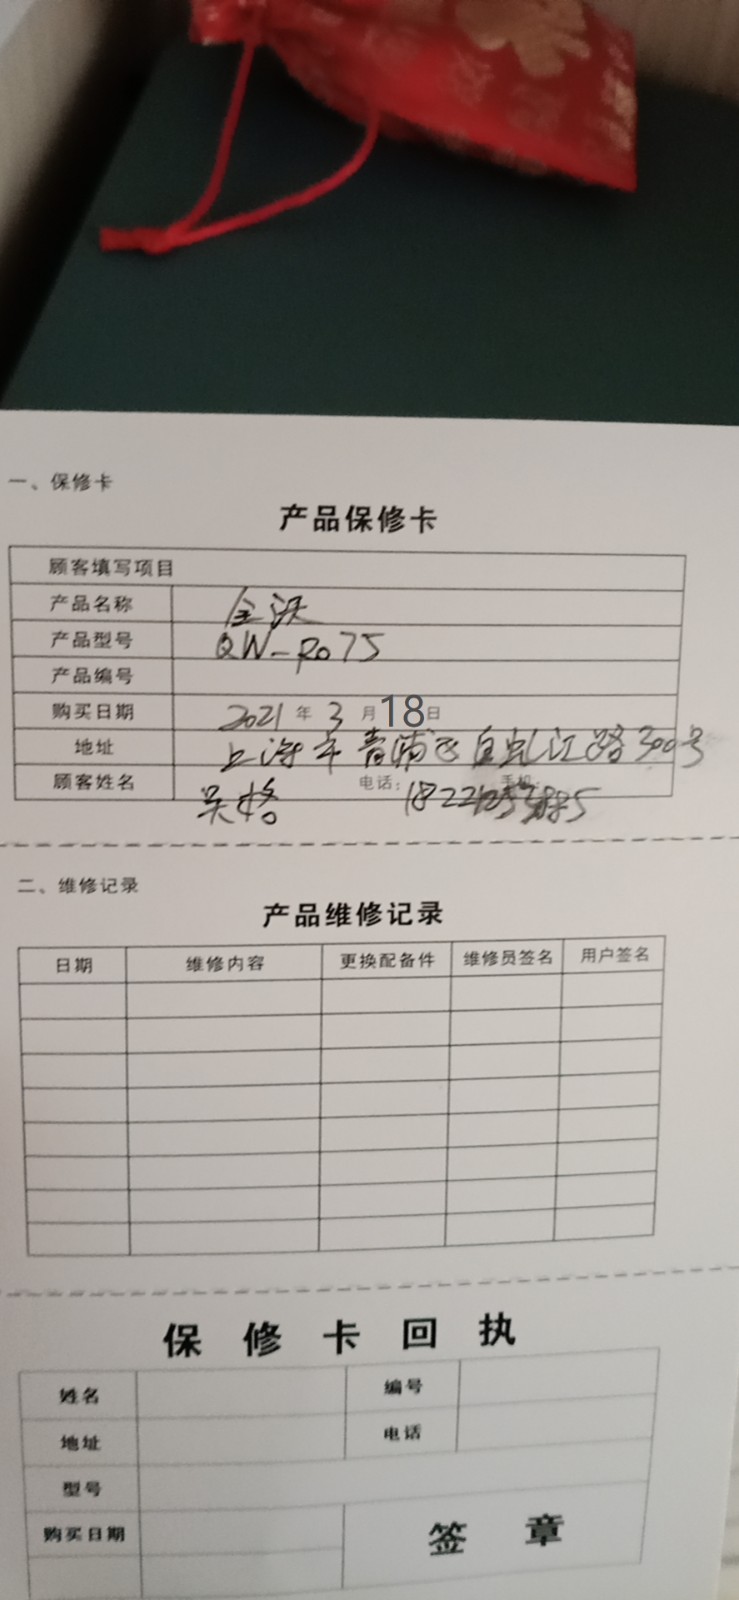 一、保修卡
产品保修卡
顾客填写项目
产品名称 全沃
产品型号 QW-R075
产品编号
购买日期 2021 年 3 月 18 日
地址 上海市青浦区 虬江路300号
顾客姓名 吴 电话: 手机:
二、维修记录
产品维修记录
日期 维修内容 更换配备件 维修员签名 用户签名
保修卡回执
姓名 编号
地址 电话
型号
购买日期 签章